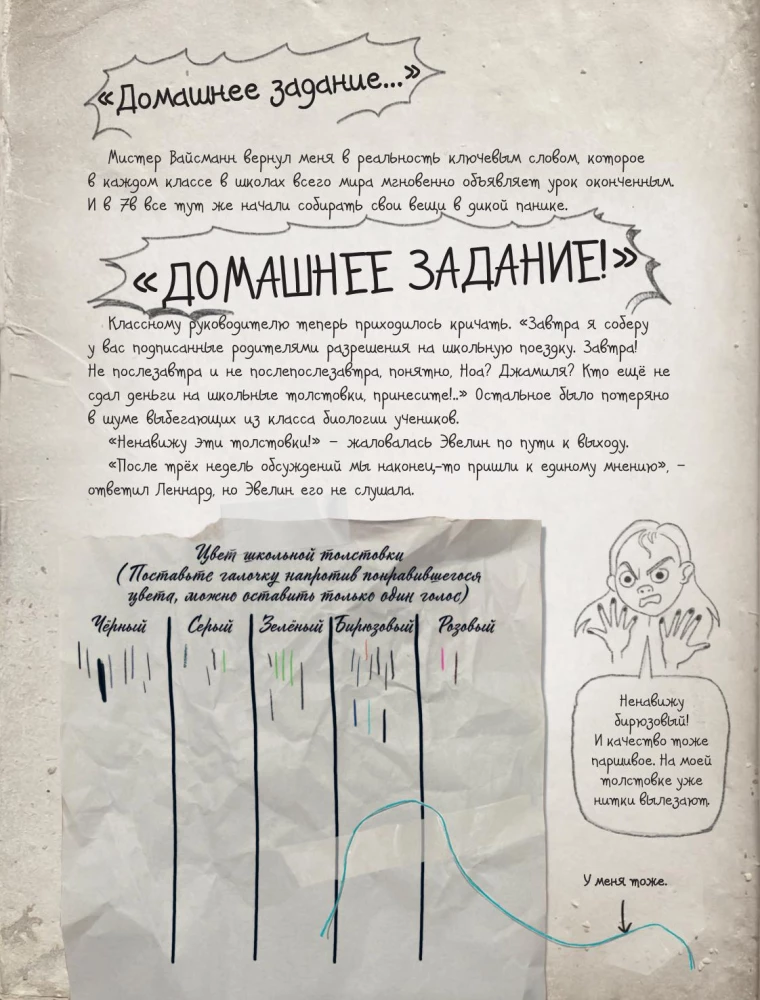 «Домашнее задание...»
Мистер Вайсманн вернул меня в реальность ключевым словом, которое
в каждом классе в школах всего мира мгновенно объявляет урок оконченным.
И в 7в все тут же начали собирать свои вещи в дикой панике.
«ДОМАШНЕЕ ЗАДАНИЕ!»
Классному руководителю теперь приходилось кричать. «Завтра я соберу
у вас подписанные родителями разрешения на школьную поездку. Завтра!
Не послезавтра и не послепослезавтра, понятно, Ноа? Джамиля? Кто ещё не
сдал деньги на школьные толстовки, принесите!..» Остальное было потеряно
в шуме выбегающих из класса биологии учеников.
«Ненавижу эти толстовки!» – жаловалась Эвелин по пути к выходу.
«После трёх недель обсуждений мы наконец-то пришли к единому мнению», –
ответил Леннард, но Эвелин его не слушала.
Цвет школьной толстовки
(Поставьте галочку напротив понравившегося
цвета, можно оставить только один голос)
Чёрный Серый Зелёный Бирюзовый Розовый
Ненавижу
бирюзовый!
И качество тоже
паршивое. На моей
толстовке уже
нитки вылезают.
У меня тоже.